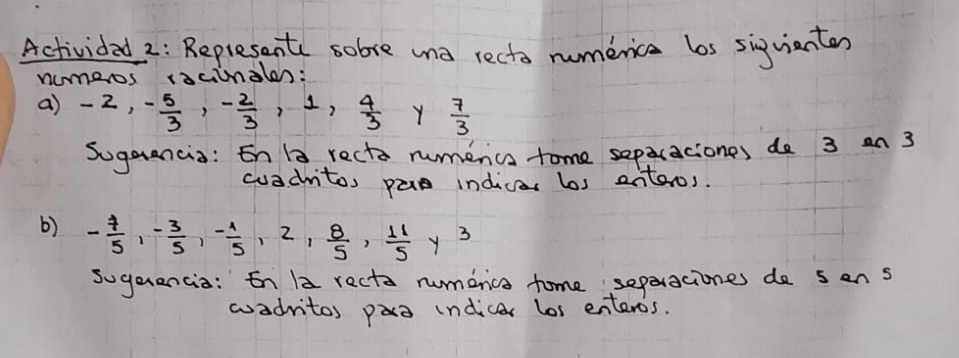 Actividad 2: Represente sobre una recta numérica los siguientes
numeros racionales:
a) -2, -5/3, -2/3, 1, 4/3 y 7/3
Sugerencia: En la recta numérica tome separaciones de 3 en 3
cuadritos para indicar los enteros.
b) -7/5, -3/5, -1/5, 2, 8/5, 11/5 y 3
Sugerencia: En la recta numérica tome separaciones de 5 en 5
cuadritos para indicar los enteros.